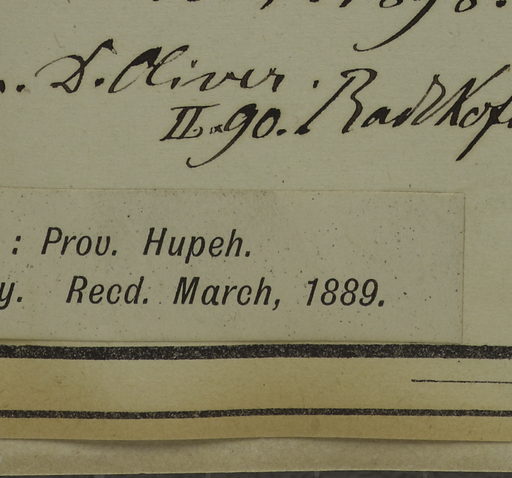 D. Oliver.
II.90. Radlkof
: Prov. Hupeh.
y. Recd. March, 1889.